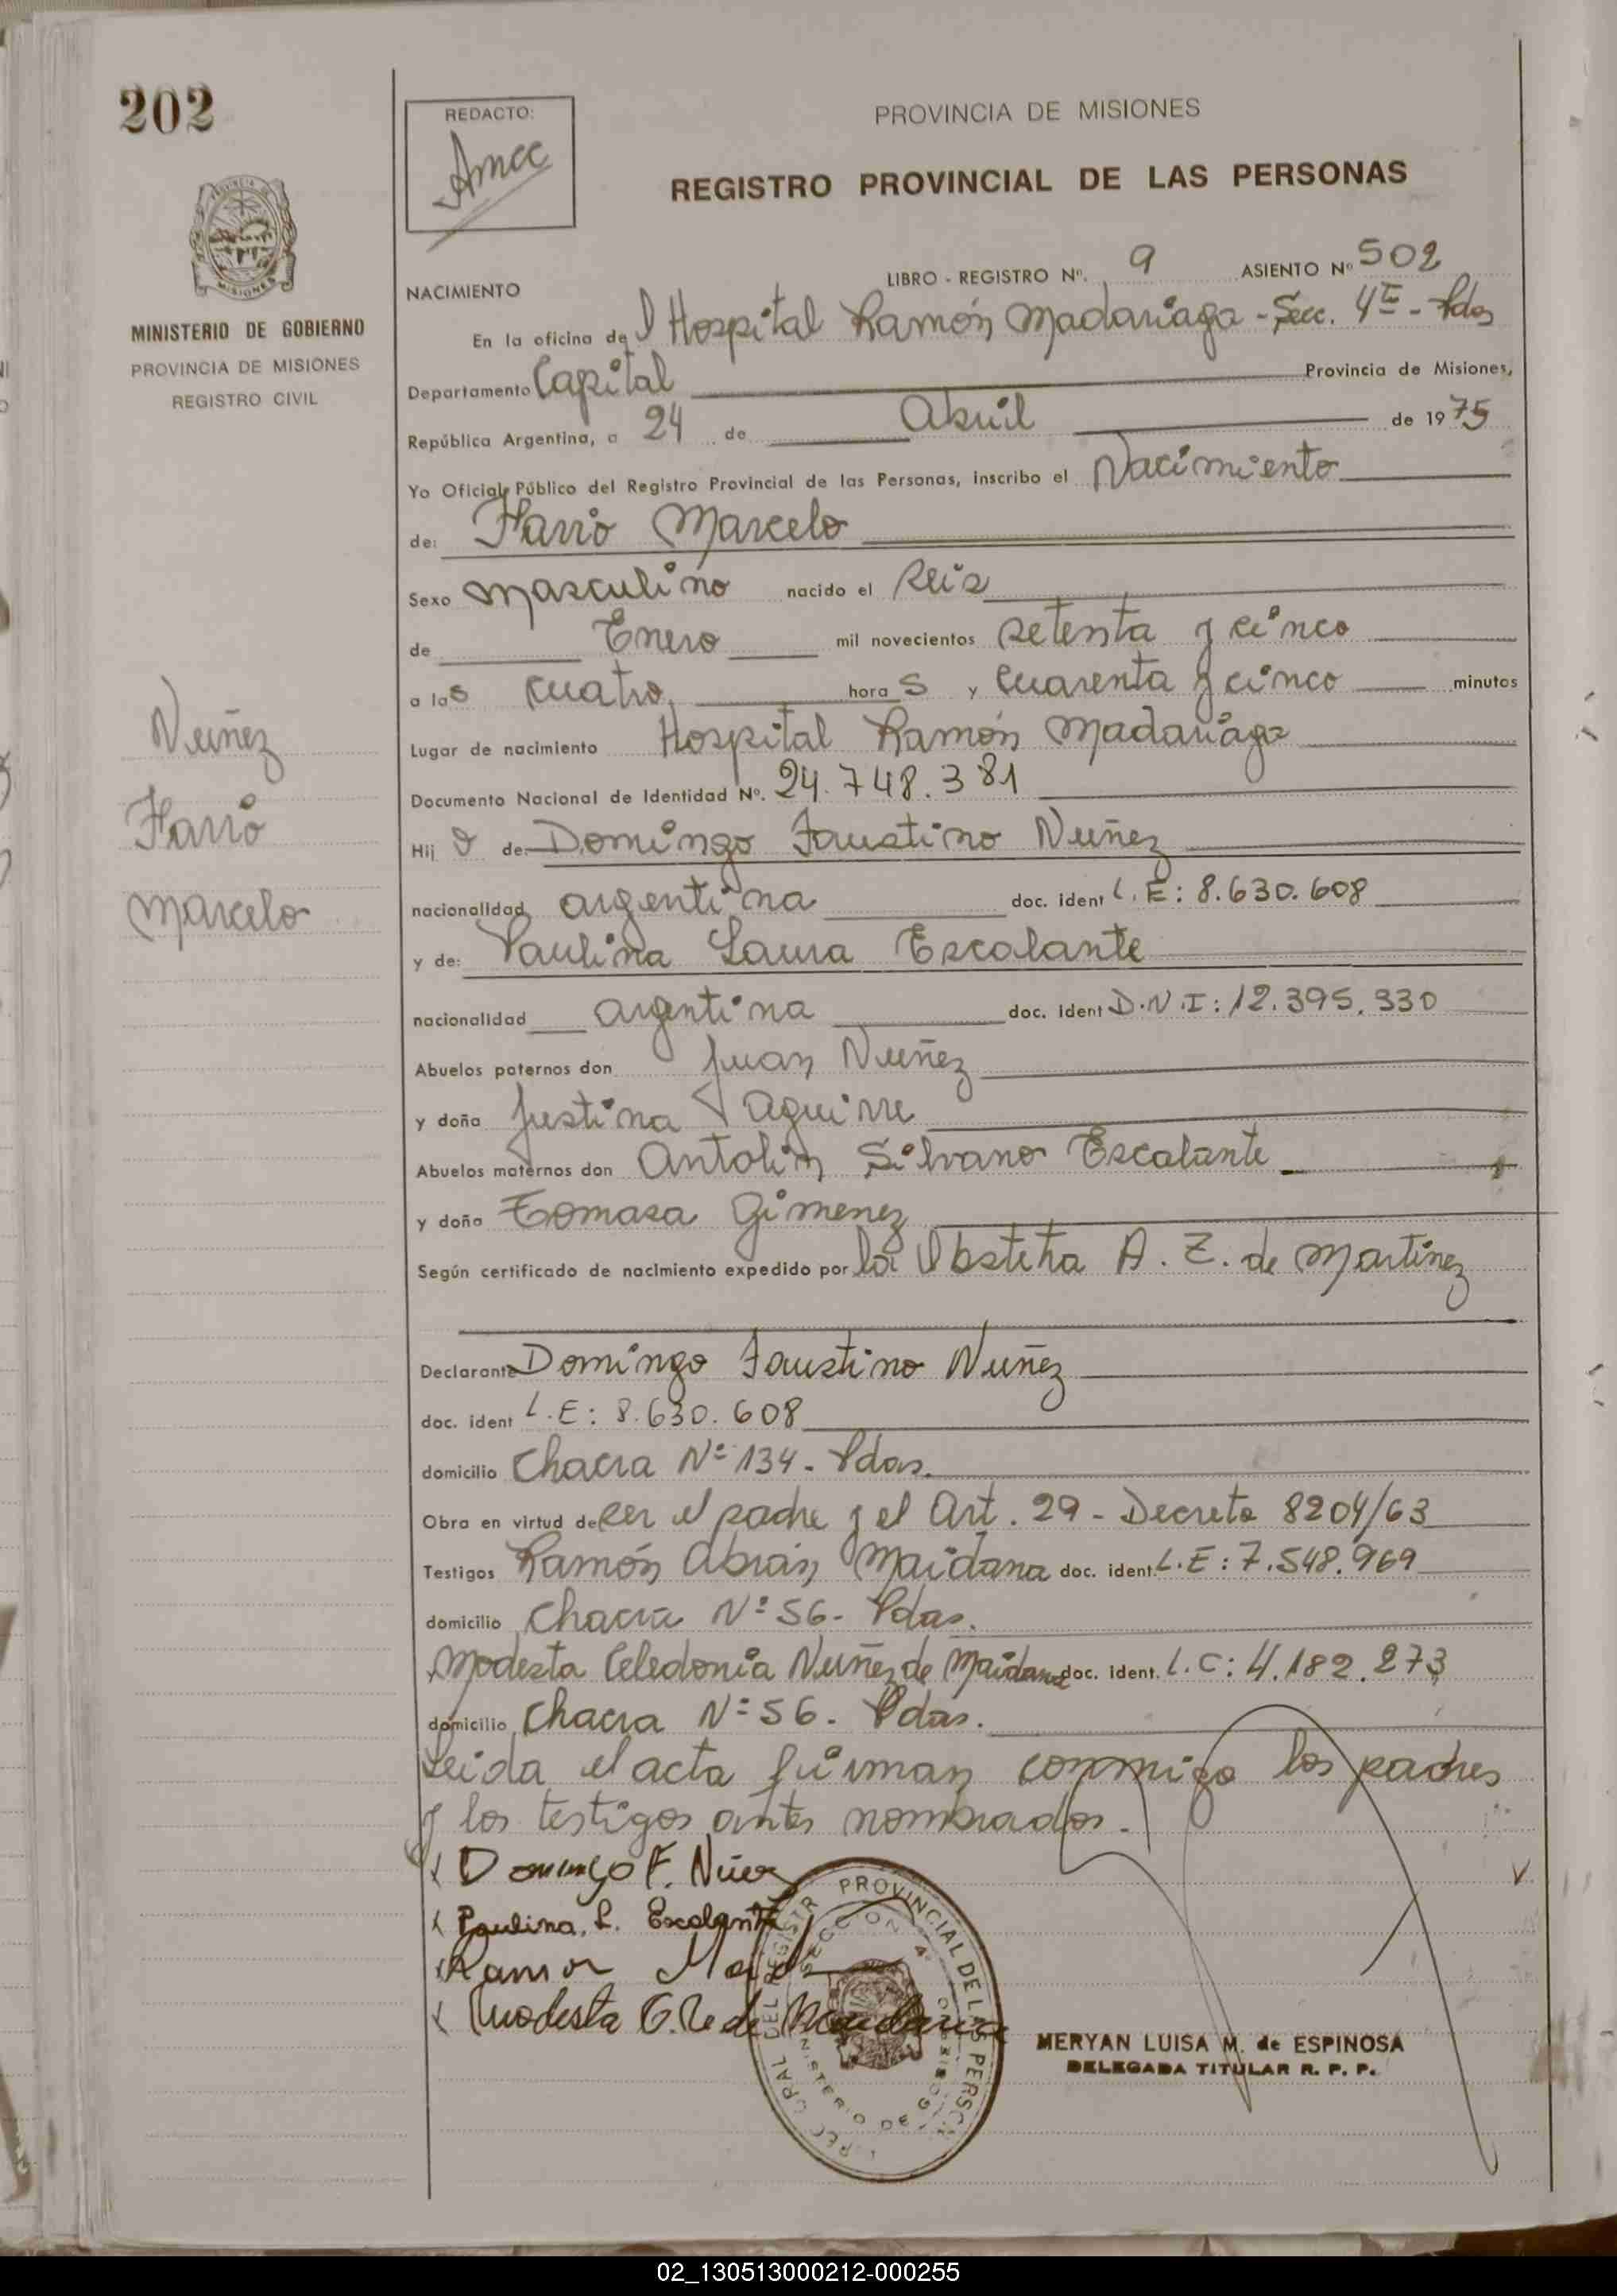 202
REDACTO:
Amcc
PROVINCIA DE MISIONES
REGISTRO PROVINCIAL DE LAS PERSONAS
MINISTERIO DE GOBIERNO
PROVINCIA DE MISIONES
REGISTRO CIVIL
LIBRO - REGISTRO Nº. 9 ASIENTO Nº 502
NACIMIENTO
En la oficina del Hospital Ramón Madariaga - Secc. 4ta - Pdas
Departamento Capital Provincia de Misiones,
República Argentina, a 24 de Abril de 1975
Yo Oficial Público del Registro Provincial de las Personas, inscribo el Nacimiento
de: Harrö Marcelo
Sexo masculino nacido el seis
de Enero mil novecientos setenta y cinco
a las cuatro horas y cuarenta y cinco minutos
Lugar de nacimiento Hospital Ramón Madariaga
Documento Nacional de Identidad Nº. 24.748.381
Hijo de: Domingo Faustino Nuñez
nacionalidad argentina doc. ident L.E: 8.630.608
y de: Paulina Laura Escalante
nacionalidad argentina doc. ident D.N.I: 12.395.330
Abuelos paternos don Juan Nuñez
y doña Justina Aguirre
Abuelos maternos don Antolin Silvano Escalante
y doña Tomasa Gimenez
Según certificado de nacimiento expedido por la Obstetra A. Z. de Martinez
Declarante Domingo Faustino Nuñez
doc. ident L.E: 8.630.608
domicilio Chacra Nº 134 - Pdas.
Obra en virtud de ser el padre y el Art. 29 - Decreto 8204/63
Testigos Ramón Abrán Maidana doc. ident. L.E: 7.548.969
domicilio Chacra Nº 56 - Pdas.
Modesta Celedonia Nuñez de Maidana doc. ident. L.C: 4.182.273
domicilio Chacra Nº 56 - Pdas.
Leida el acta firman conmigo los padres
y los testigos antes nombrados.
Nuñez
Harrö
Marcelo
Domingo F. Núez
Paulina, L. Escalante
Ramon
Modesta C. de Maidana
PROVINCIAL DE LAS PERSO
SECCION 4ª
MINISTERIO DE GO
MERYAN LUISA M. de ESPINOSA
DELEGADA TITULAR R. P. P.
02_130513000212-000255